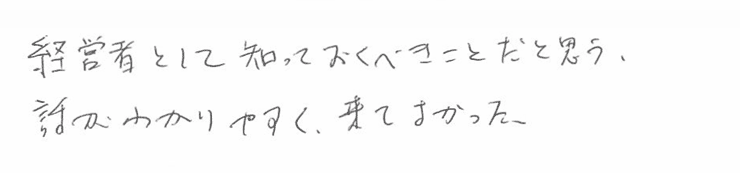 経営者として知っておくべきことだと思う、
話がわかりやすく、来てよかった。